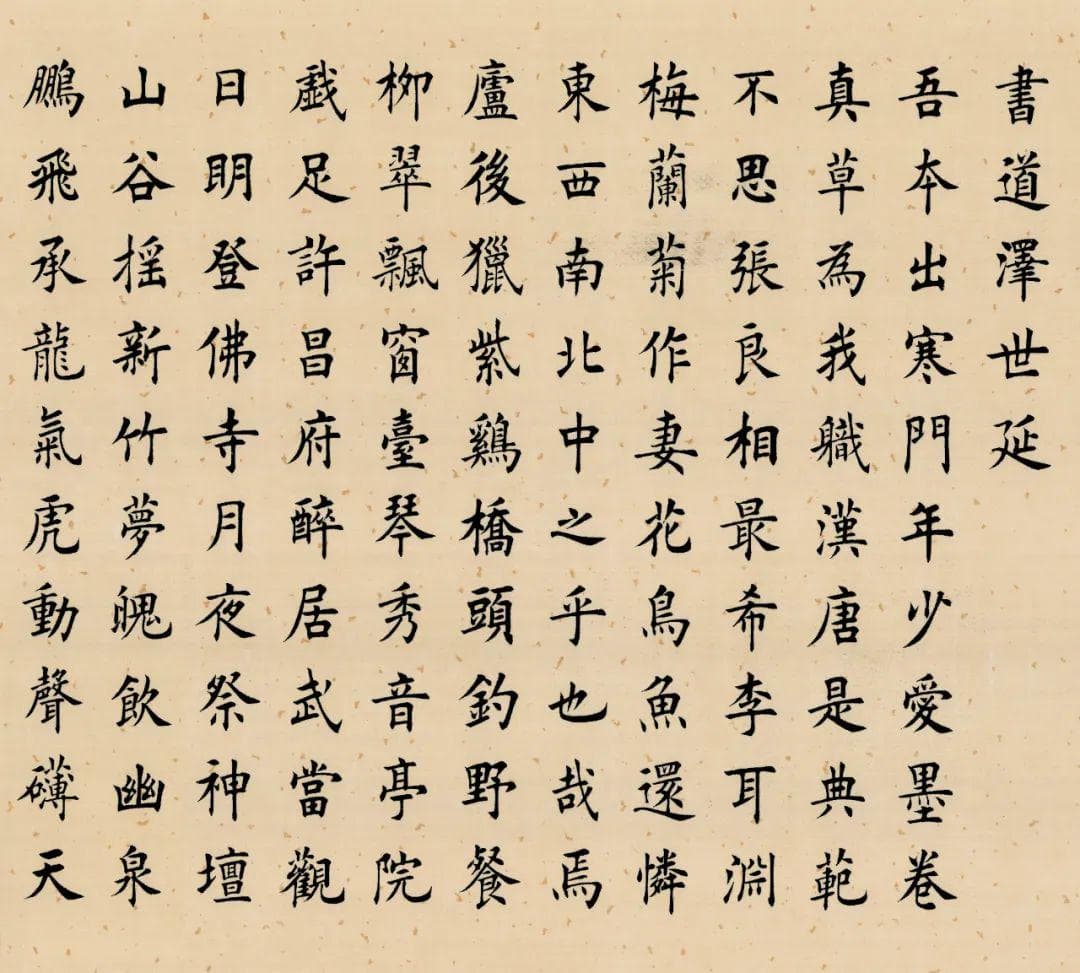 書道澤世延
吾本出寒門年少愛墨卷
真草為我職漢唐是典範
不思張良相最希李耳淵
梅蘭菊作妻花鳥魚還憐
東西南北中之乎也哉焉
廬後獵紫鷄橋頭釣野餐
柳翠飄窗臺琴秀音亭院
戲足許昌府醉居武當觀
日明登佛寺月夜祭神壇
山谷摇新竹夢魄飲幽泉
鵬飛承龍氣虎動聲礴天